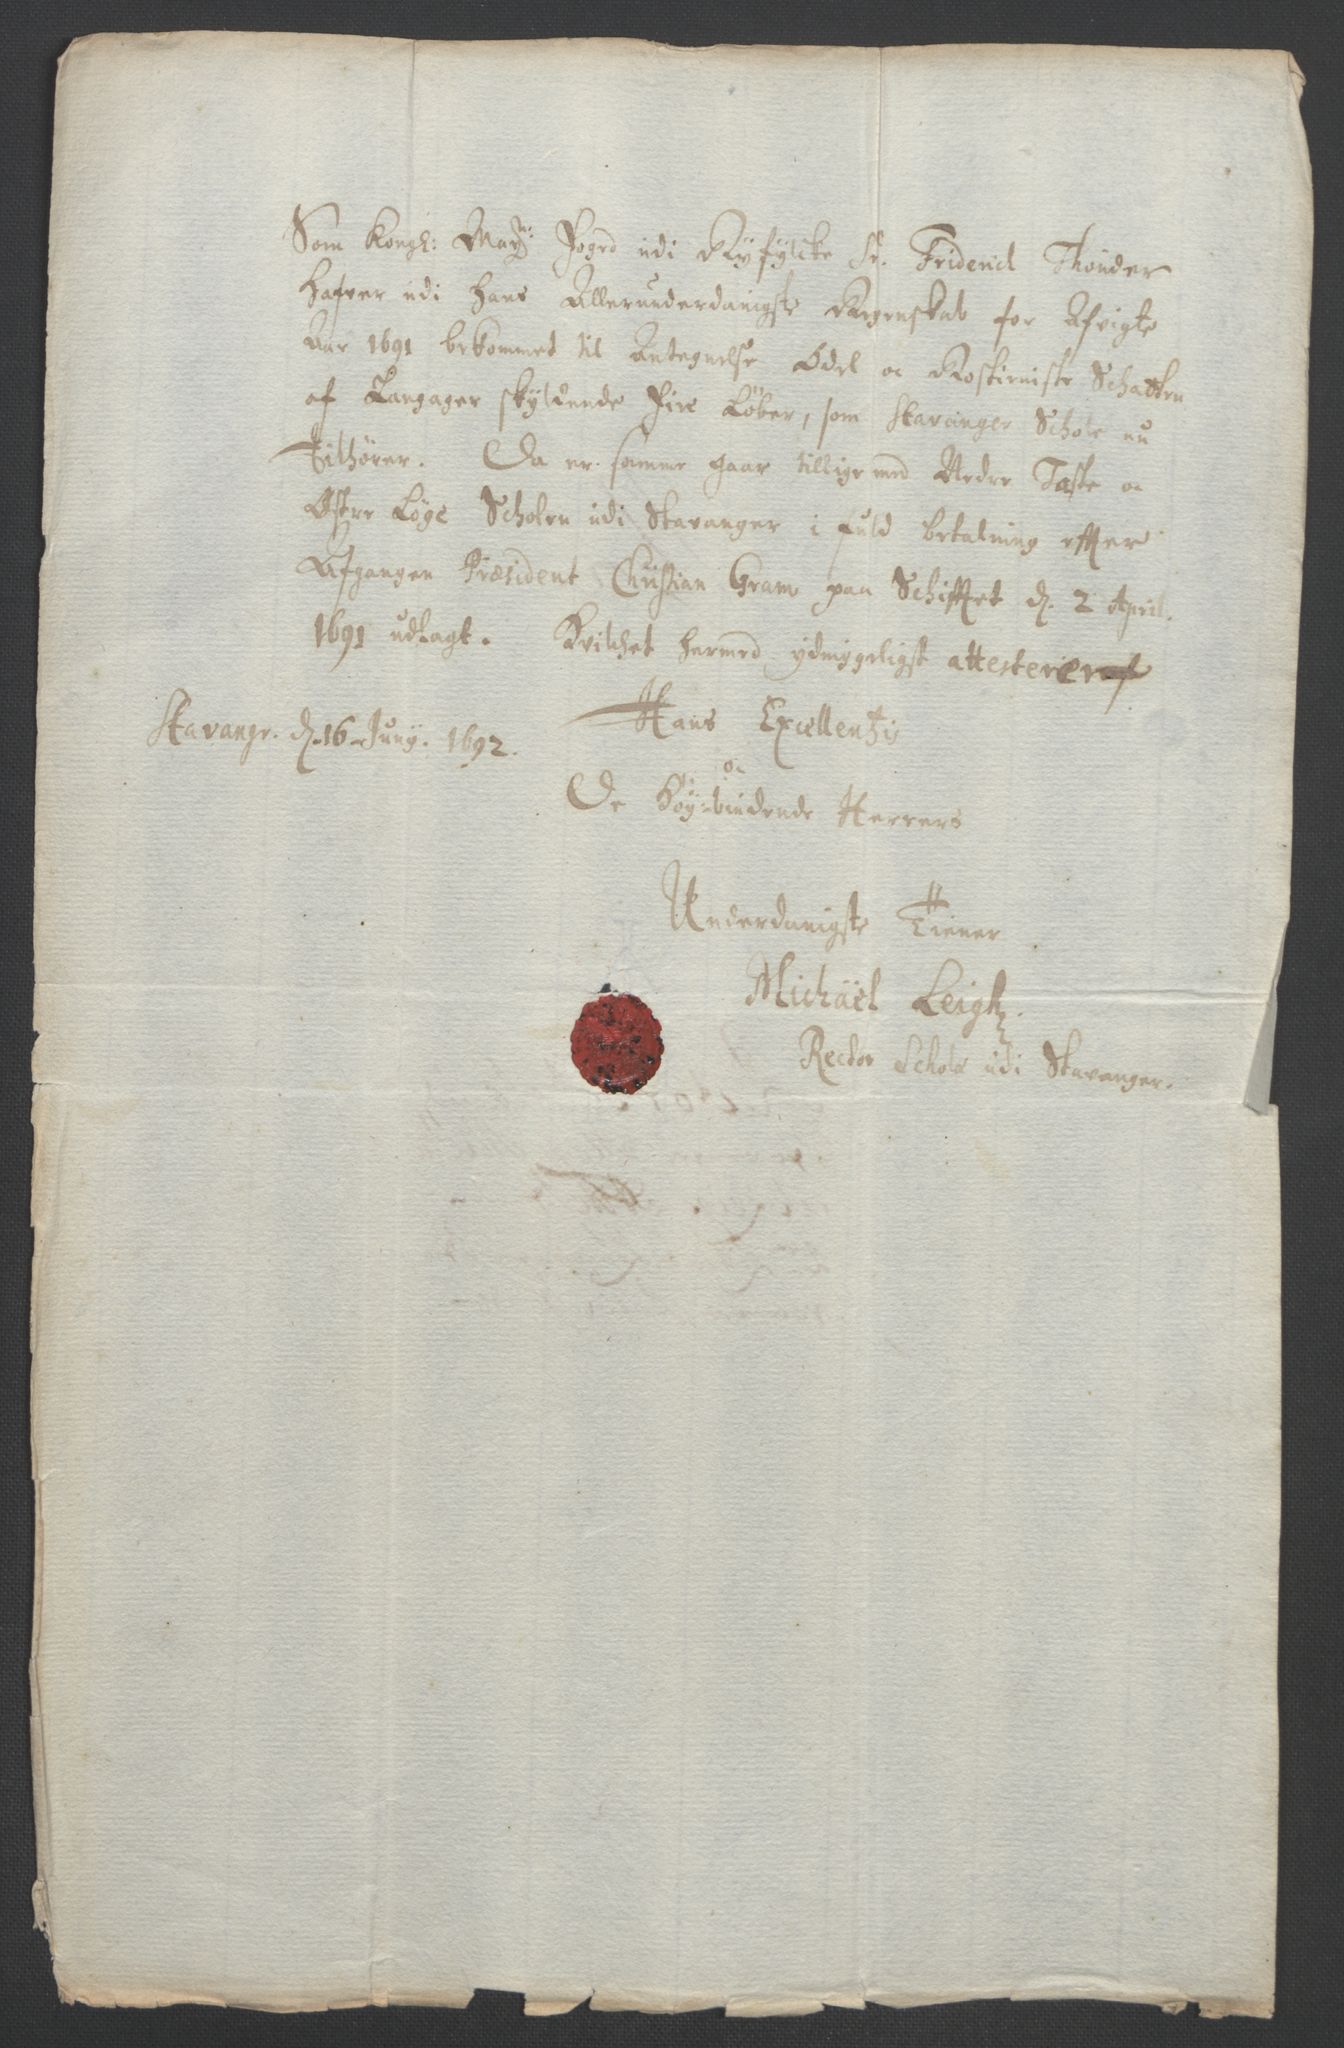 Som Kongl: May:ts Foged udi Ryfylcke Sr. Friderich Thonder
hafver udi hans Allerunderdanigste Regenskab for Afvigte
Aar 1691 bekommet til Antegnelse Odel oc Rostieniste Schatten
af Langager skyldende Fire Løber, som Stavanger Schole nu
Tilhører. Da er samme gaar tillige med Nedre Taste oc
Østre Løge Scholen udi Stavanger i fuld betalning efter
Afgangen Præsident Christian Gram paa Schifftet d. 2 April.
1691 udlagt. Hvilchet hermed ydmygeligst attesterer
Stavangr. d. 16 Juny. 1692.
Hans Excellentz
oc
De Høy-biudende Herrers
Underdanigste Tiener
Michäel Leigh.
Rector Scholæ udi Stavanger.